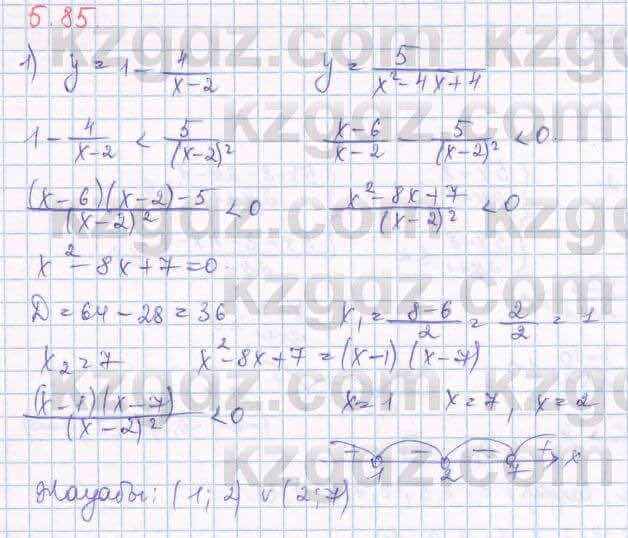 5.85
1) y = 1 - 4/(x-2) y = 5/(x²-4x+4)
1 - 4/(x-2) < 5/(x-2)² (x-6)/(x-2) - 5/(x-2)² < 0.
((x-6)(x-2)-5)/(x-2)² < 0 (x²-8x+7)/(x-2)² < 0
x²-8x+7=0.
D = 64-28 = 36 x₁ = (8-6)/2 = 2/2 = 1
x₂ = 7 x²-8x+7 = (x-1)(x-7)
((x-1)(x-7))/(x-2)² < 0 x=1 x=7, x=2
+ - - +
1 2 7 x
Жауабы: (1; 2) ∪ (2; 7)
kzgdz.com